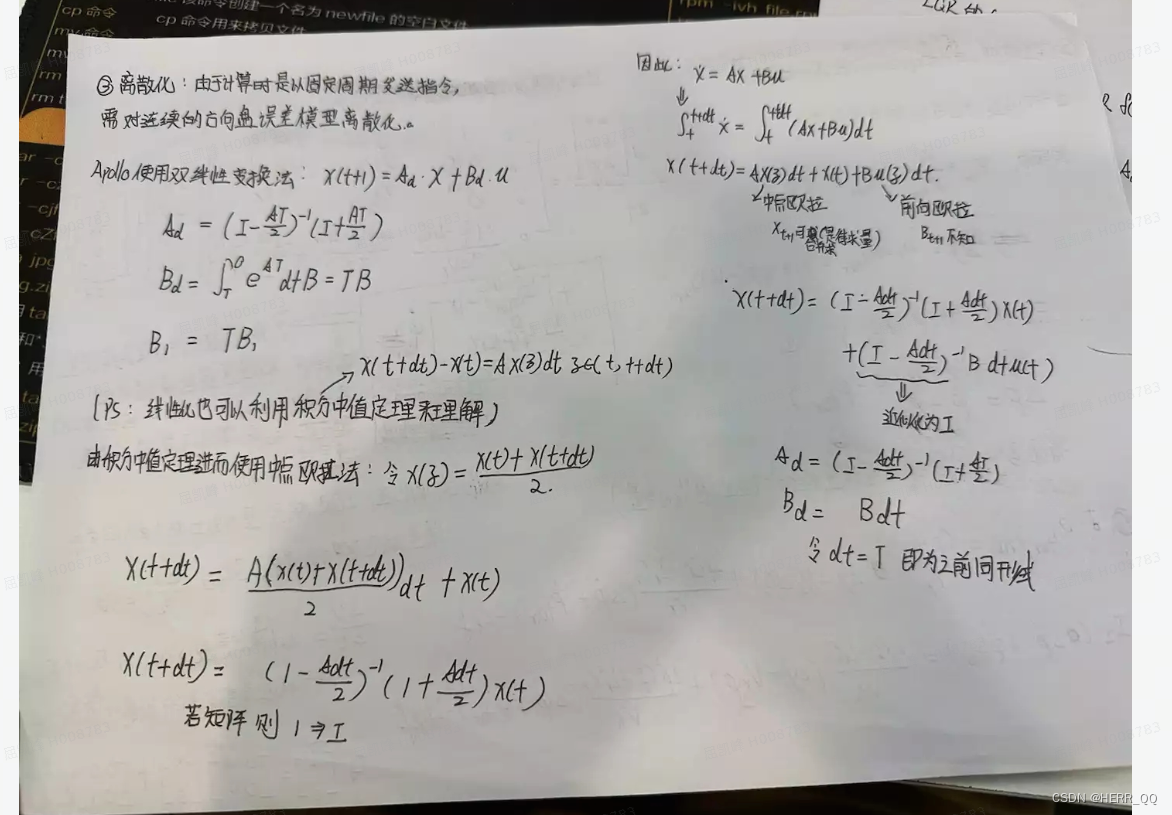 cp 命令
命令创建一个名为 newfile 的空白文件
cp 命令用来拷贝文件
rpm -ivh file.rpm
③ 离散化：由于计算时是以固定周期发送指令，
需对连续的方向盘误差模型离散化。
Apollo使用双线性变换法： X(t+1) = Ad · X + Bd · u
Ad = (I - AT/2)⁻¹(I + AT/2)
Bd = ∫_T^0 e^{AT} dt B = TB
B₁ = TB₁
X(t+dt) - X(t) = AX(ξ)dt ξ∈(t, t+dt)
(PS：线性化也可以利用积分中值定理来理解)
由积分中值定理进而使用中点欧拉法：令 X(ξ) = (X(t) + X(t+dt))/2.
X(t+dt) = A(X(t)+X(t+dt))/2 dt + X(t)
X(t+dt) = (1 - Adt/2)⁻¹(1 + Adt/2) X(t)
若矩阵则 1 ⇒ I
因此： Ẋ = AX + Bu
⇓
∫_t^{t+dt} Ẋ = ∫_t^{t+dt} (AX+Bu)dt
X(t+dt) = AX(ξ)dt + X(t) + Bu(ξ)dt.
中点欧拉
前向欧拉
B_{t+1} 不知
X(t+dt) = (I - Adt/2)⁻¹(I + Adt/2) X(t)
+ (I - Adt/2)⁻¹ B dt u(t)
⇓
近似为 I
Ad = (I - Adt/2)⁻¹(I + AT/2)
Bd = Bdt
令 dt = T 即为之前同形式
CSDN @HERR_QQ